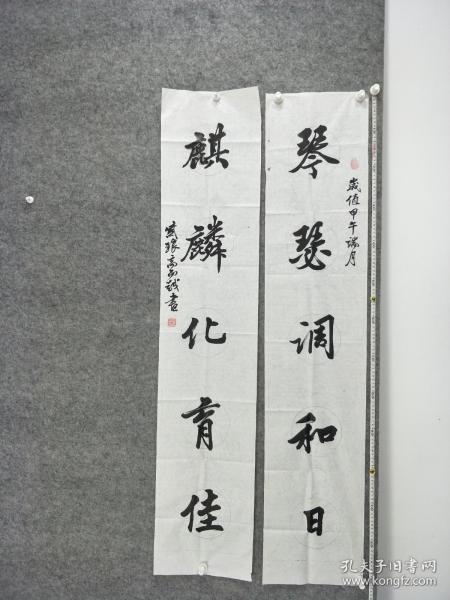 琴瑟调和日
岁值甲午瑞月
麒麟化育佳
孔夫子旧书网
www.kongfz.com